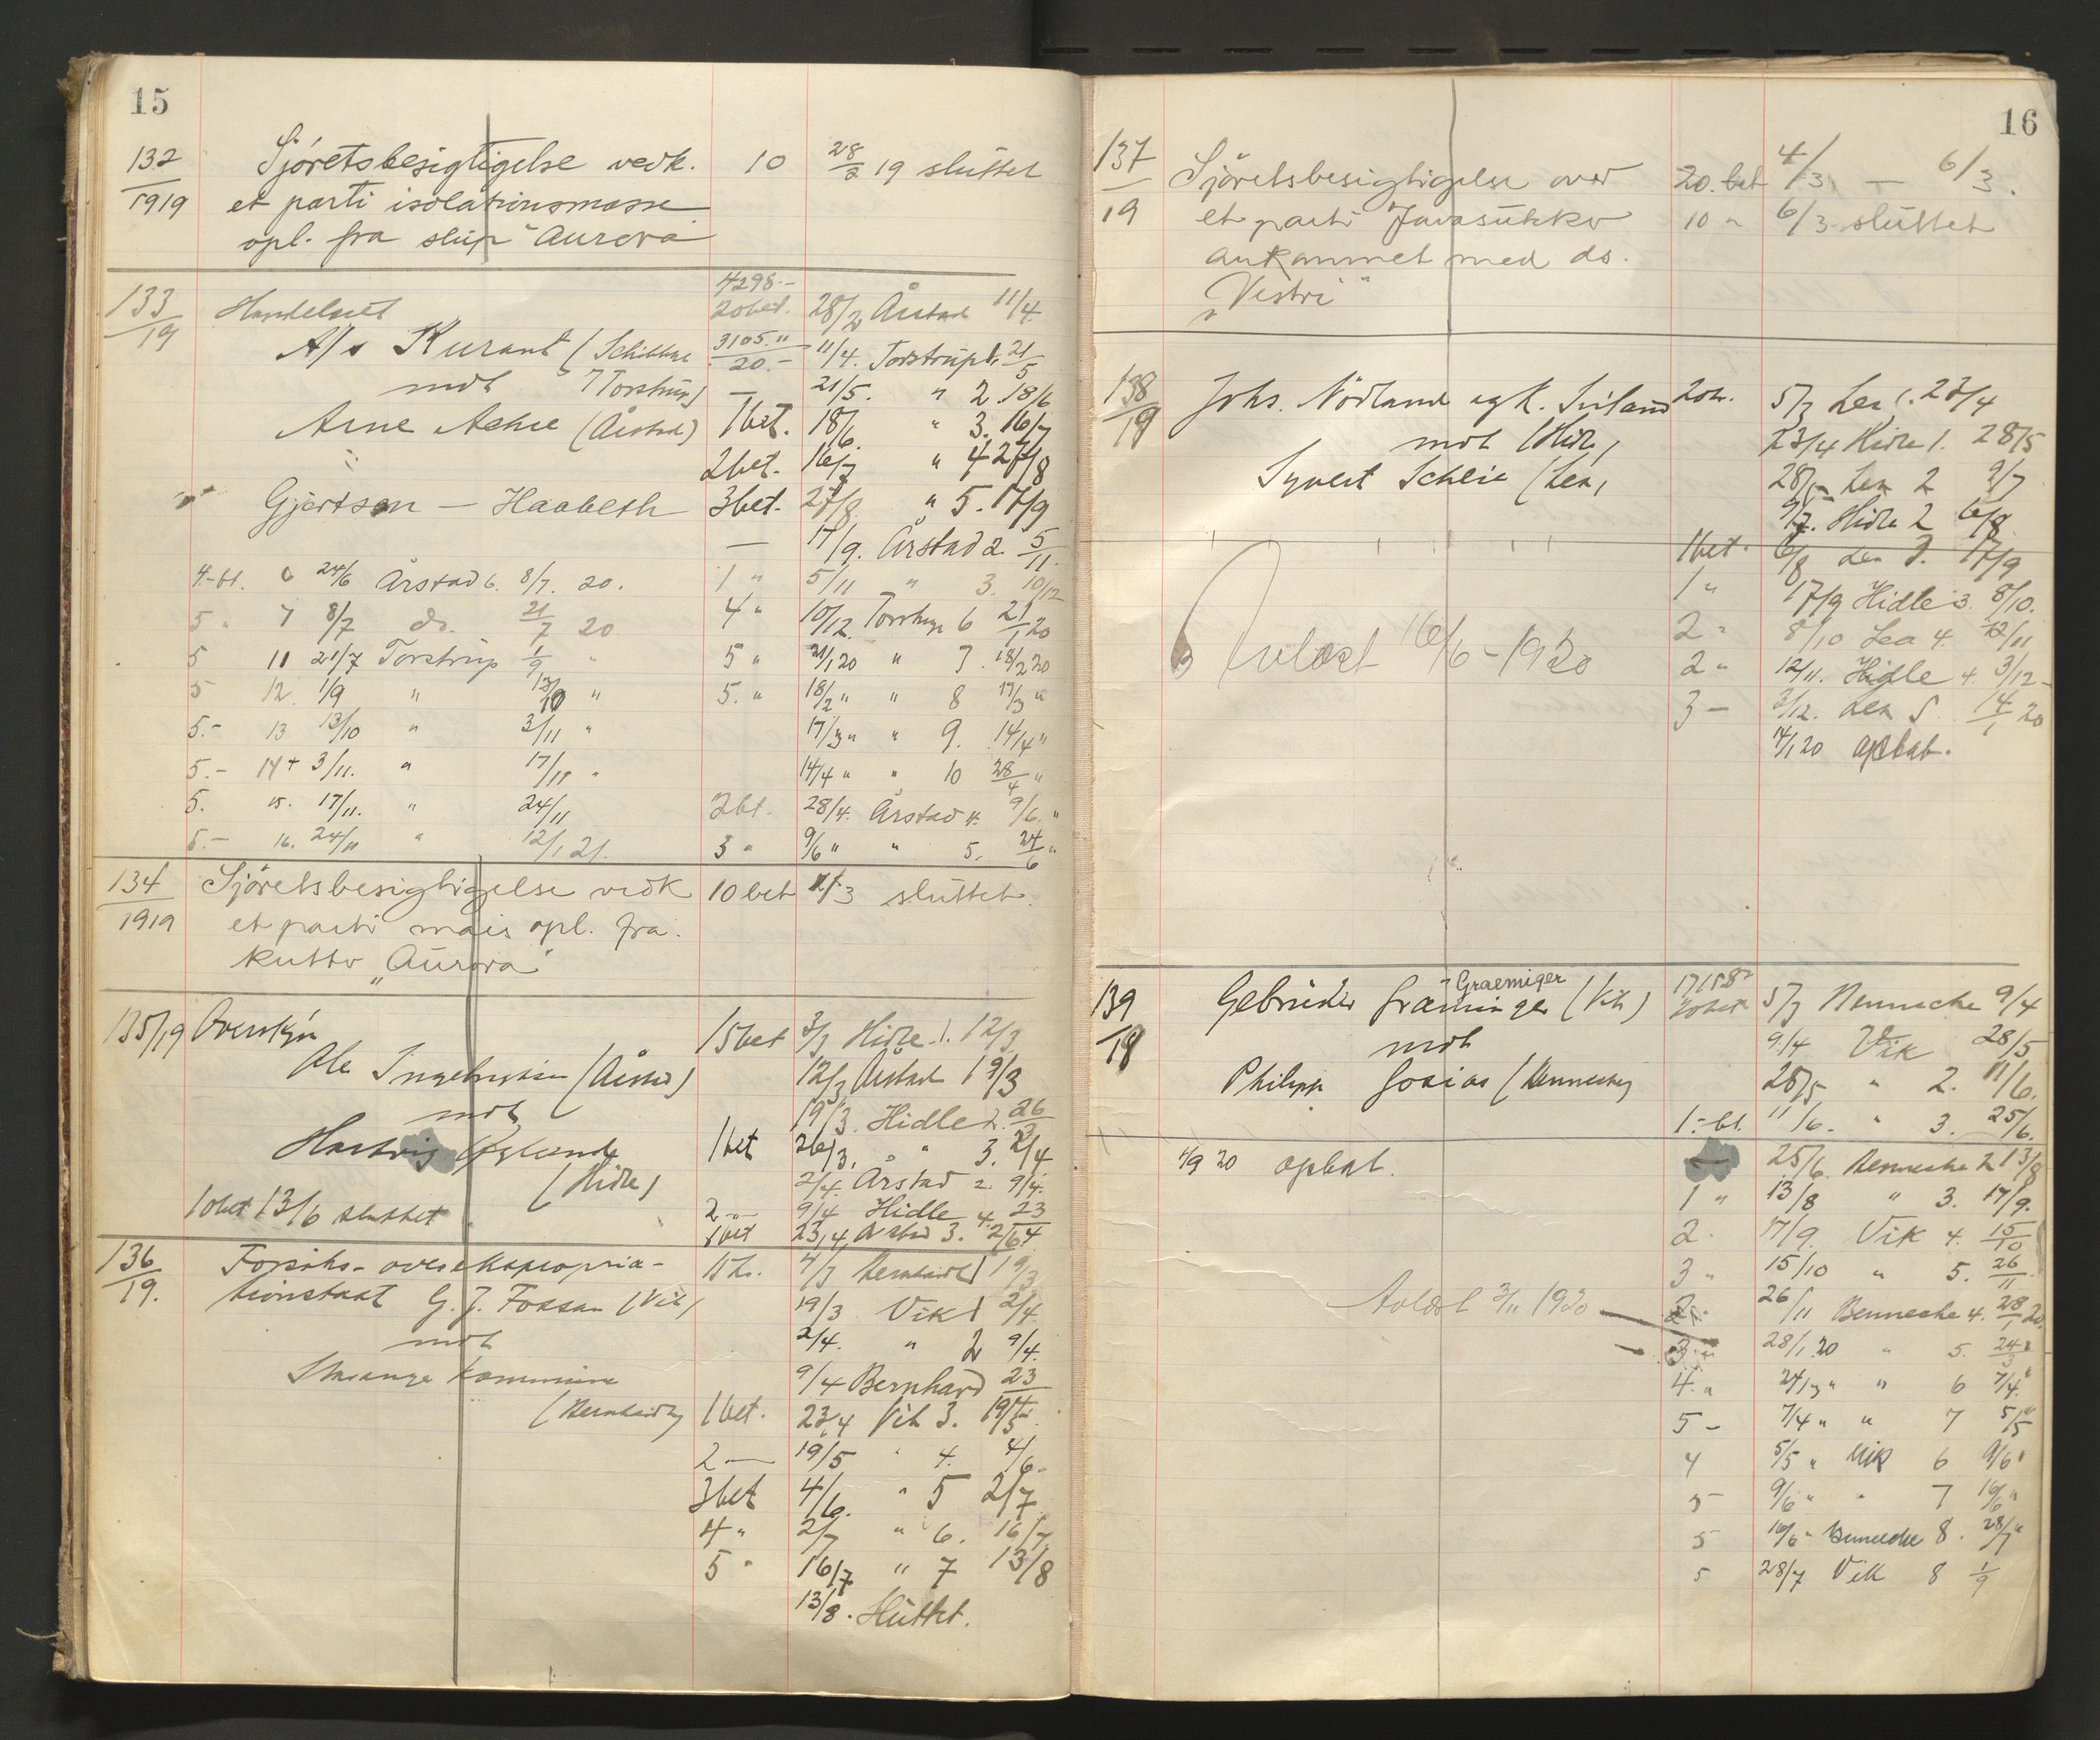 15
132 Sjöretsbesigtigelse vedk. 10 28/2 19 sluttet
1919 et parti isolationsmasse
opl. fra skip "Aurora"
4298.-
133 Handelsret 20 bet. 28/2 Årstad 11/4
19 A/s Kurant (Schibbye 3105." 11/4. Torstrup 1. 21/5
20.-
mot Torstrup) — 21/5. " 2 18/6
Arne Aehre (Årstad) 1 bet. 18/6. " 3. 16/7
2 bet. 16/7 " 4 27/8
Gjertsen — Haabeth 3 bet. 27/8. " 5. 17/9
— 17/9. Årstad 2. 5/11.
4.- bt. 6 24/6 Årstad 6. 8/7. 20. 1 " 5/11 " 3. 10/12
5 " 7 8/7 do. 21/7 20 4 " 10/12. Torstrup 6 21/1 20
5 11 21/7 Torstrup 1/9 " 5 " 21/1 20 " 7. 18/2 20
5 12. 1/9 " 13/10 " 5. " 18/2 " " 8 17/3 "
5.- 13 13/10 " 3/11 " 17/3 " " 9. 14/4 "
5.- 14 3/11. " 17/11 " 14/4 " " 10 28/4 "
5. 15. 17/11. " 24/11 2 bt. 28/4. Årstad 4. 9/6. "
5.- 16. 24/11 " 12/1 21. 3 " 9/6 " " 5. 24/6 "
134 Sjöretsbesigtigelse vedk 10 bet 1/3 sluttet.
1919 et parti mais opl. fra
kutter "Aurora"
135/19 Overskjn 15 bet 3/3 Hidle 1. 12/3
Ole Ingebrigtsen (Årstad) 12/3 Årstad 19/3
mot 19/3. Hidle 2. 26/3
Hartvig 1 bet 26/3. " 3. 2/4
(Hidle) 2/4. Årstad 2. 9/4.
10 bet 13/6 sluttet 2 — 9/4 Hidle 4. 23
1 bet 23/4 Årstad 3.
136 Forsöks- over ekspropria- 15 kr. 4/3 Bernhard 1 19/3
19. tionstakst G. J. Fossan (Vik) 19/3 Vik 1 2/4.
mot 2/4. " 2 9/4.
Stavanger kommune 9/4 Bernhard 23
(Bernhard) 1 bet. 23/4 Vik 3. 19/5.
2 — 19/5 " 4. 4/6.
3 bet 4/6. " 5 2/7
4 " 2/7 " 6. 16/7.
5 " 16/7 " 7 13/8
13/8. Sluttet.
16
137 Sjöretsbesigtigelse over 20. bet 4/3 — 6/3.
19 et parti Javasukker 10 " 6/3 sluttet
ankommet med ds.
"Vestri"
138 Johs. Nödland 20 kr. 5/3 Lea 1. 23/4
19 mot (Hidle) 23/4 Hidle 1. 28/5
Syvert Scheie (Lea) 28/5 Lea 2 9/7
9/7. Hidle 2 6/8
1 bet. 6/8 Lea 3. 17/9
1 " 17/9 Hidle 3 8/10.
Avlost 16/6 - 1920 2 " 8/10 Lea 4. 12/11
2 " 12/11. Hidle 4. 3/12
3 — 3/12. Lea 5. 14/1 20
14/1 20 opbat.
Graemiger
139 Gebrüder Gräminger (Vik) 20 bet. 5/3 Bennecke 9/4
19 mot 9/4 Vik 28/5
Philipp Josias (Bennecke) 28/5 " 2. 11/6.
1.- bt. 11/6. " 3. 25/6.
1/9 20 opbat. — 25/6. Bennecke 2 13/8
1 " 13/8 " 3. 17/9.
2. 17/9. Vik 4. 15/10
3 " 15/10 " 5. 26/11.
Avlost 3/11 1920 2. 26/11 Bennecke 4. 28/1 20.
3 " 28/1 20 " 5. 24/3 "
4. " 24/3 " " 6 7/4. "
5 - 7/4 " " 7 5/5 "
4 5/5 " Vik 6 9/6 "
5 9/6 " " 7 16/6 "
5 16/6 " Bennecke 8. 28/7 "
5 28/7 Vik 8 1/9